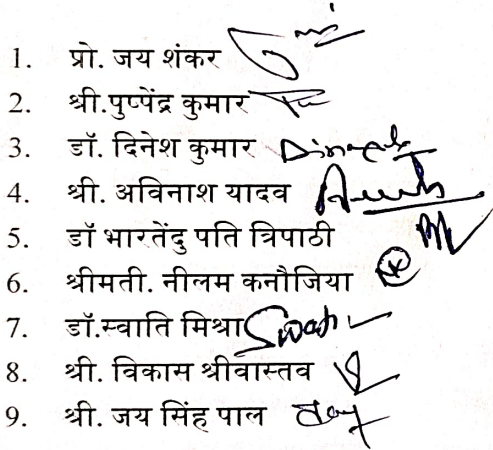 1. प्रो. जय शंकर
2. श्री.पुष्पेंद्र कुमार
3. डॉ. दिनेश कुमार Dinesh
4. श्री. अविनाश यादव
5. डॉ भारतेंदु पति त्रिपाठी
6. श्रीमती. नीलम कनौजिया
7. डॉ.स्वाति मिश्रा Swati
8. श्री. विकास श्रीवास्तव
9. श्री. जय सिंह पाल